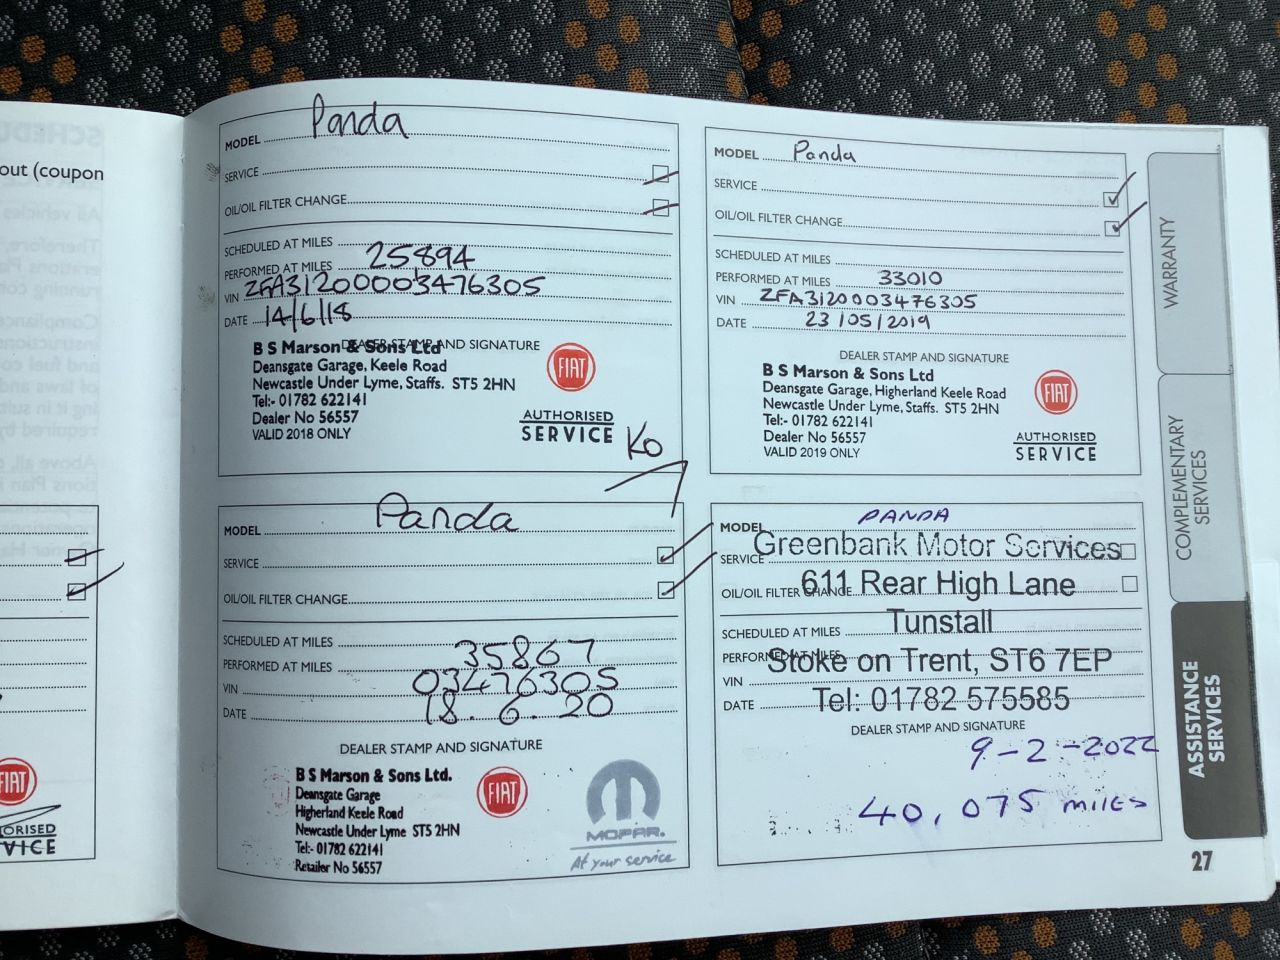 out (coupon
MODEL Panda
SERVICE
OIL/OIL FILTER CHANGE
SCHEDULED AT MILES
PERFORMED AT MILES 25894
VIN ZFA31200003476305
DATE 14/6/18
DEALER STAMP AND SIGNATURE
B S Marson & Sons Ltd
Deansgate Garage, Keele Road
Newcastle Under Lyme, Staffs. ST5 2HN
Tel:- 01782 622141
Dealer No 56557
VALID 2018 ONLY
FIAT
AUTHORISED
SERVICE
KO
MODEL Panda
SERVICE
OIL/OIL FILTER CHANGE
SCHEDULED AT MILES
PERFORMED AT MILES 33010
VIN ZFA3120003476305
DATE 23/05/2019
DEALER STAMP AND SIGNATURE
B S Marson & Sons Ltd
Deansgate Garage, Higherland Keele Road
Newcastle Under Lyme, Staffs. ST5 2HN
Tel:- 01782 622141
Dealer No 56557
VALID 2019 ONLY
FIAT
AUTHORISED
SERVICE
MODEL Panda
SERVICE
OIL/OIL FILTER CHANGE
SCHEDULED AT MILES
PERFORMED AT MILES 35867
VIN 03476305
DATE 18.6.20
DEALER STAMP AND SIGNATURE
B S Marson & Sons Ltd.
Deansgate Garage
Higherland Keele Road
Newcastle Under Lyme ST5 2HN
Tel:- 01782 622141
Retailer No 56557
FIAT
MOPAR.
At your service
MODEL PANDA
SERVICE
OIL/OIL FILTER CHANGE
SCHEDULED AT MILES
PERFORMED AT MILES
VIN
DATE
Greenbank Motor Services
611 Rear High Lane
Tunstall
Stoke on Trent, ST6 7EP
Tel: 01782 575585
DEALER STAMP AND SIGNATURE
9-2-2022
40,075 MILES
WARRANTY
COMPLEMENTARY
SERVICES
ASSISTANCE
SERVICES
27